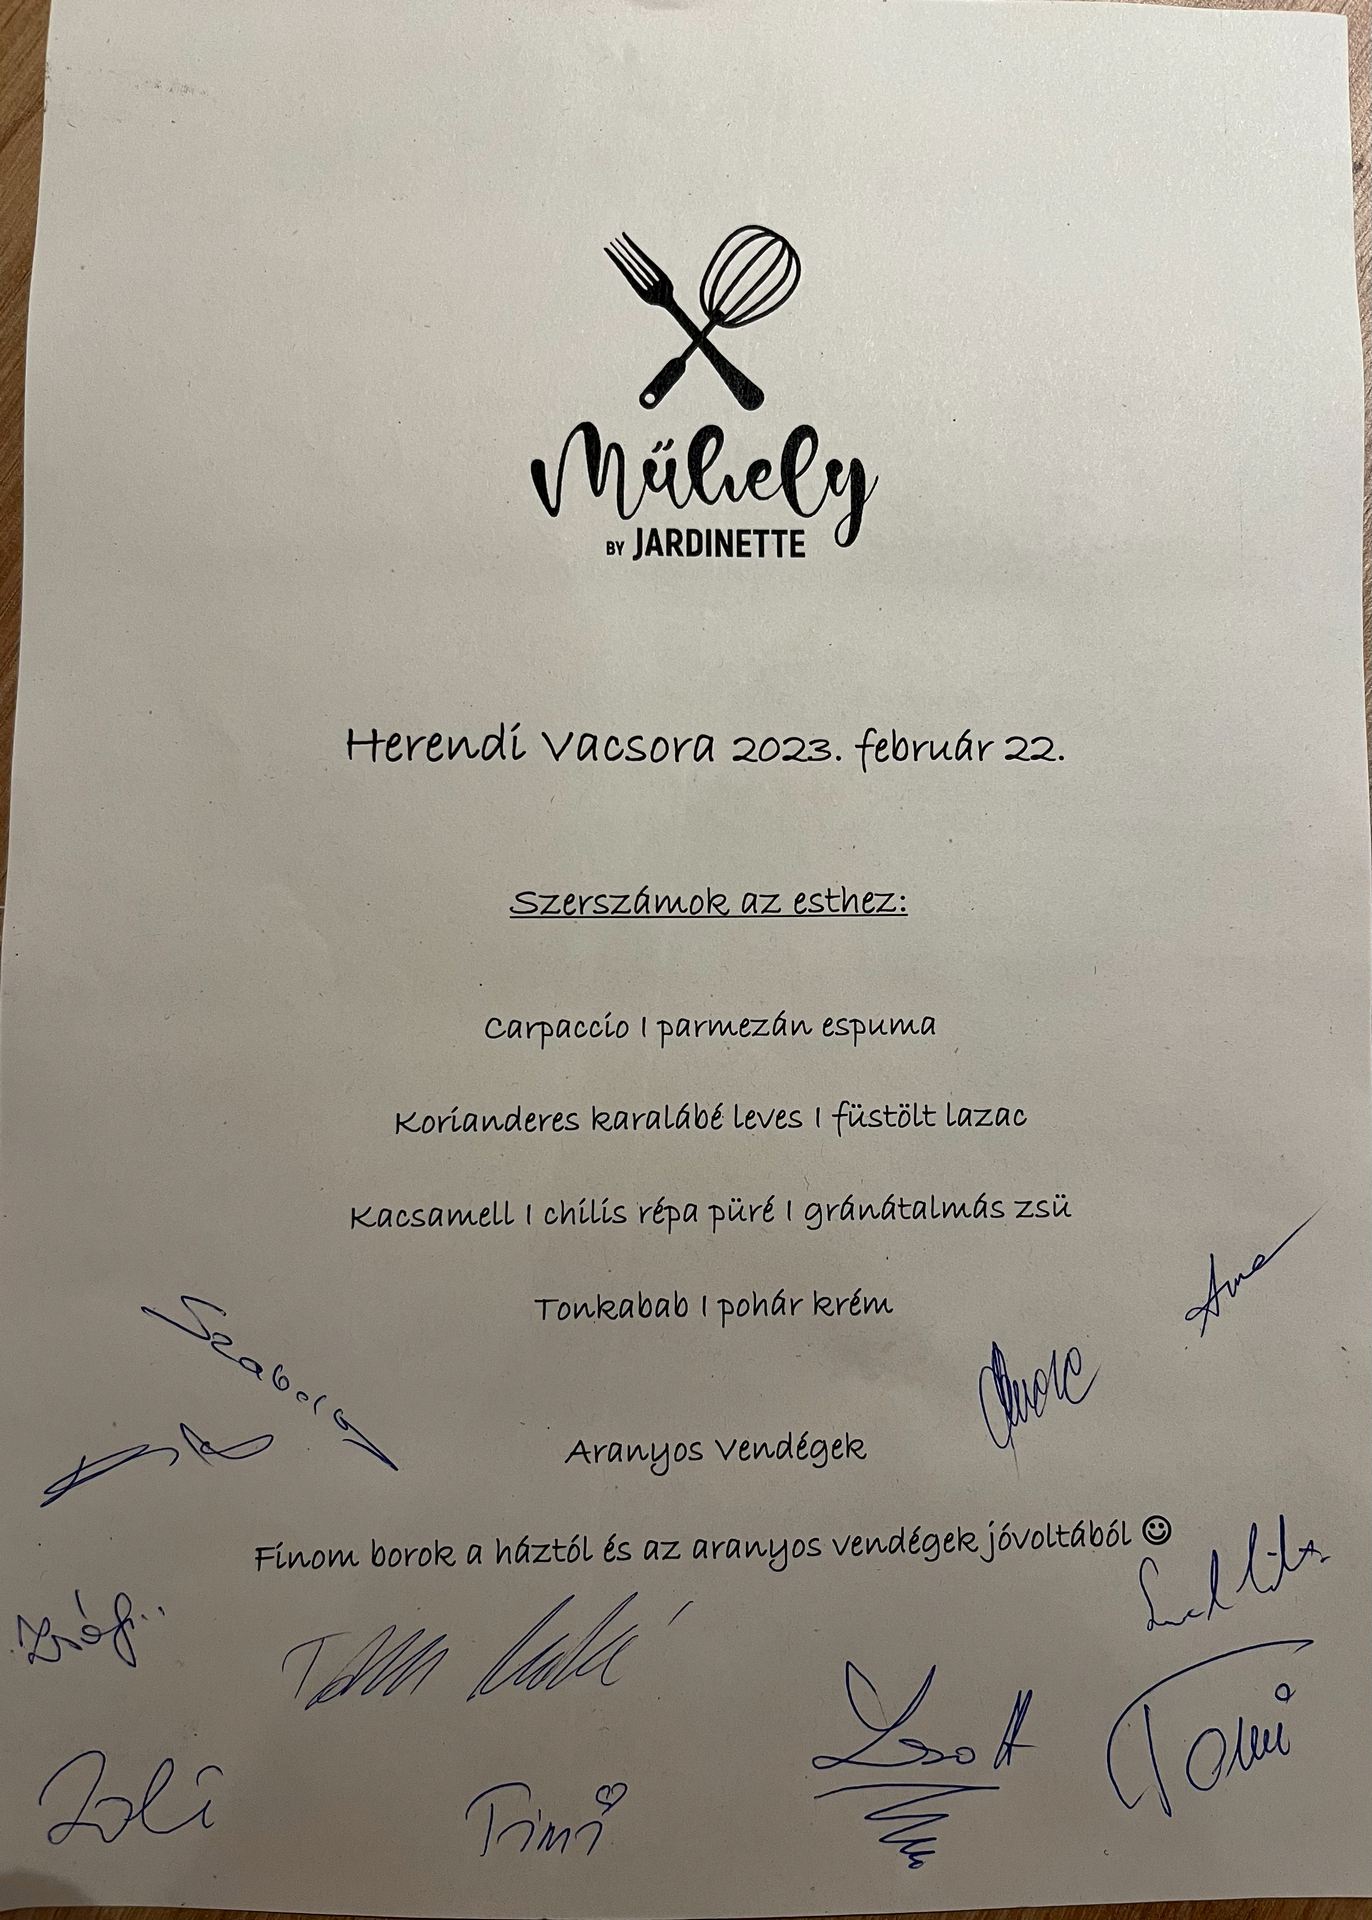 Műhely
BY JARDINETTE
Herendi Vacsora 2023. február 22.
Szerszámok az esthez:
Carpaccio | parmezán espuma
Korianderes karalábé leves | füstölt lazac
Kacsamell | chilis répa püré | gránátalmás zsü
Tonkabab | pohár krém
Szabolcs
Aranyos Vendégek
Finom borok a háztól és az aranyos vendégek jóvoltából ☺
Zsófi
Zsolt
Tomi
Zoli
Timi